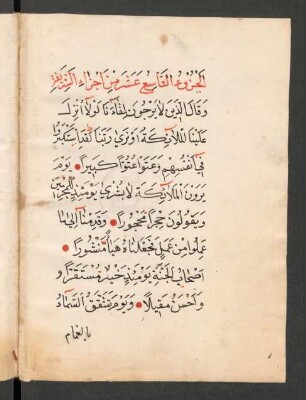 الجزوء التاسع عشر من اجزاء الشريفة
وقال الذين لا يرجون لقاءنا لولا انزل
علينا الملائكة اونرى ربنا لقد استكبروا
في انفسهم وعتوا عتوا كبيرا يوم
يرون الملائكة لا بشرى يومئذ للمجرمين
ويقولون حجرا محجورا وقدمنا الى ما
عملوا من عمل فجعلناه هباء منثورا
اصحاب الجنة يومئذ خير مستقرا
واحسن مقيلا ويوم تشقق السماء
بالغمام